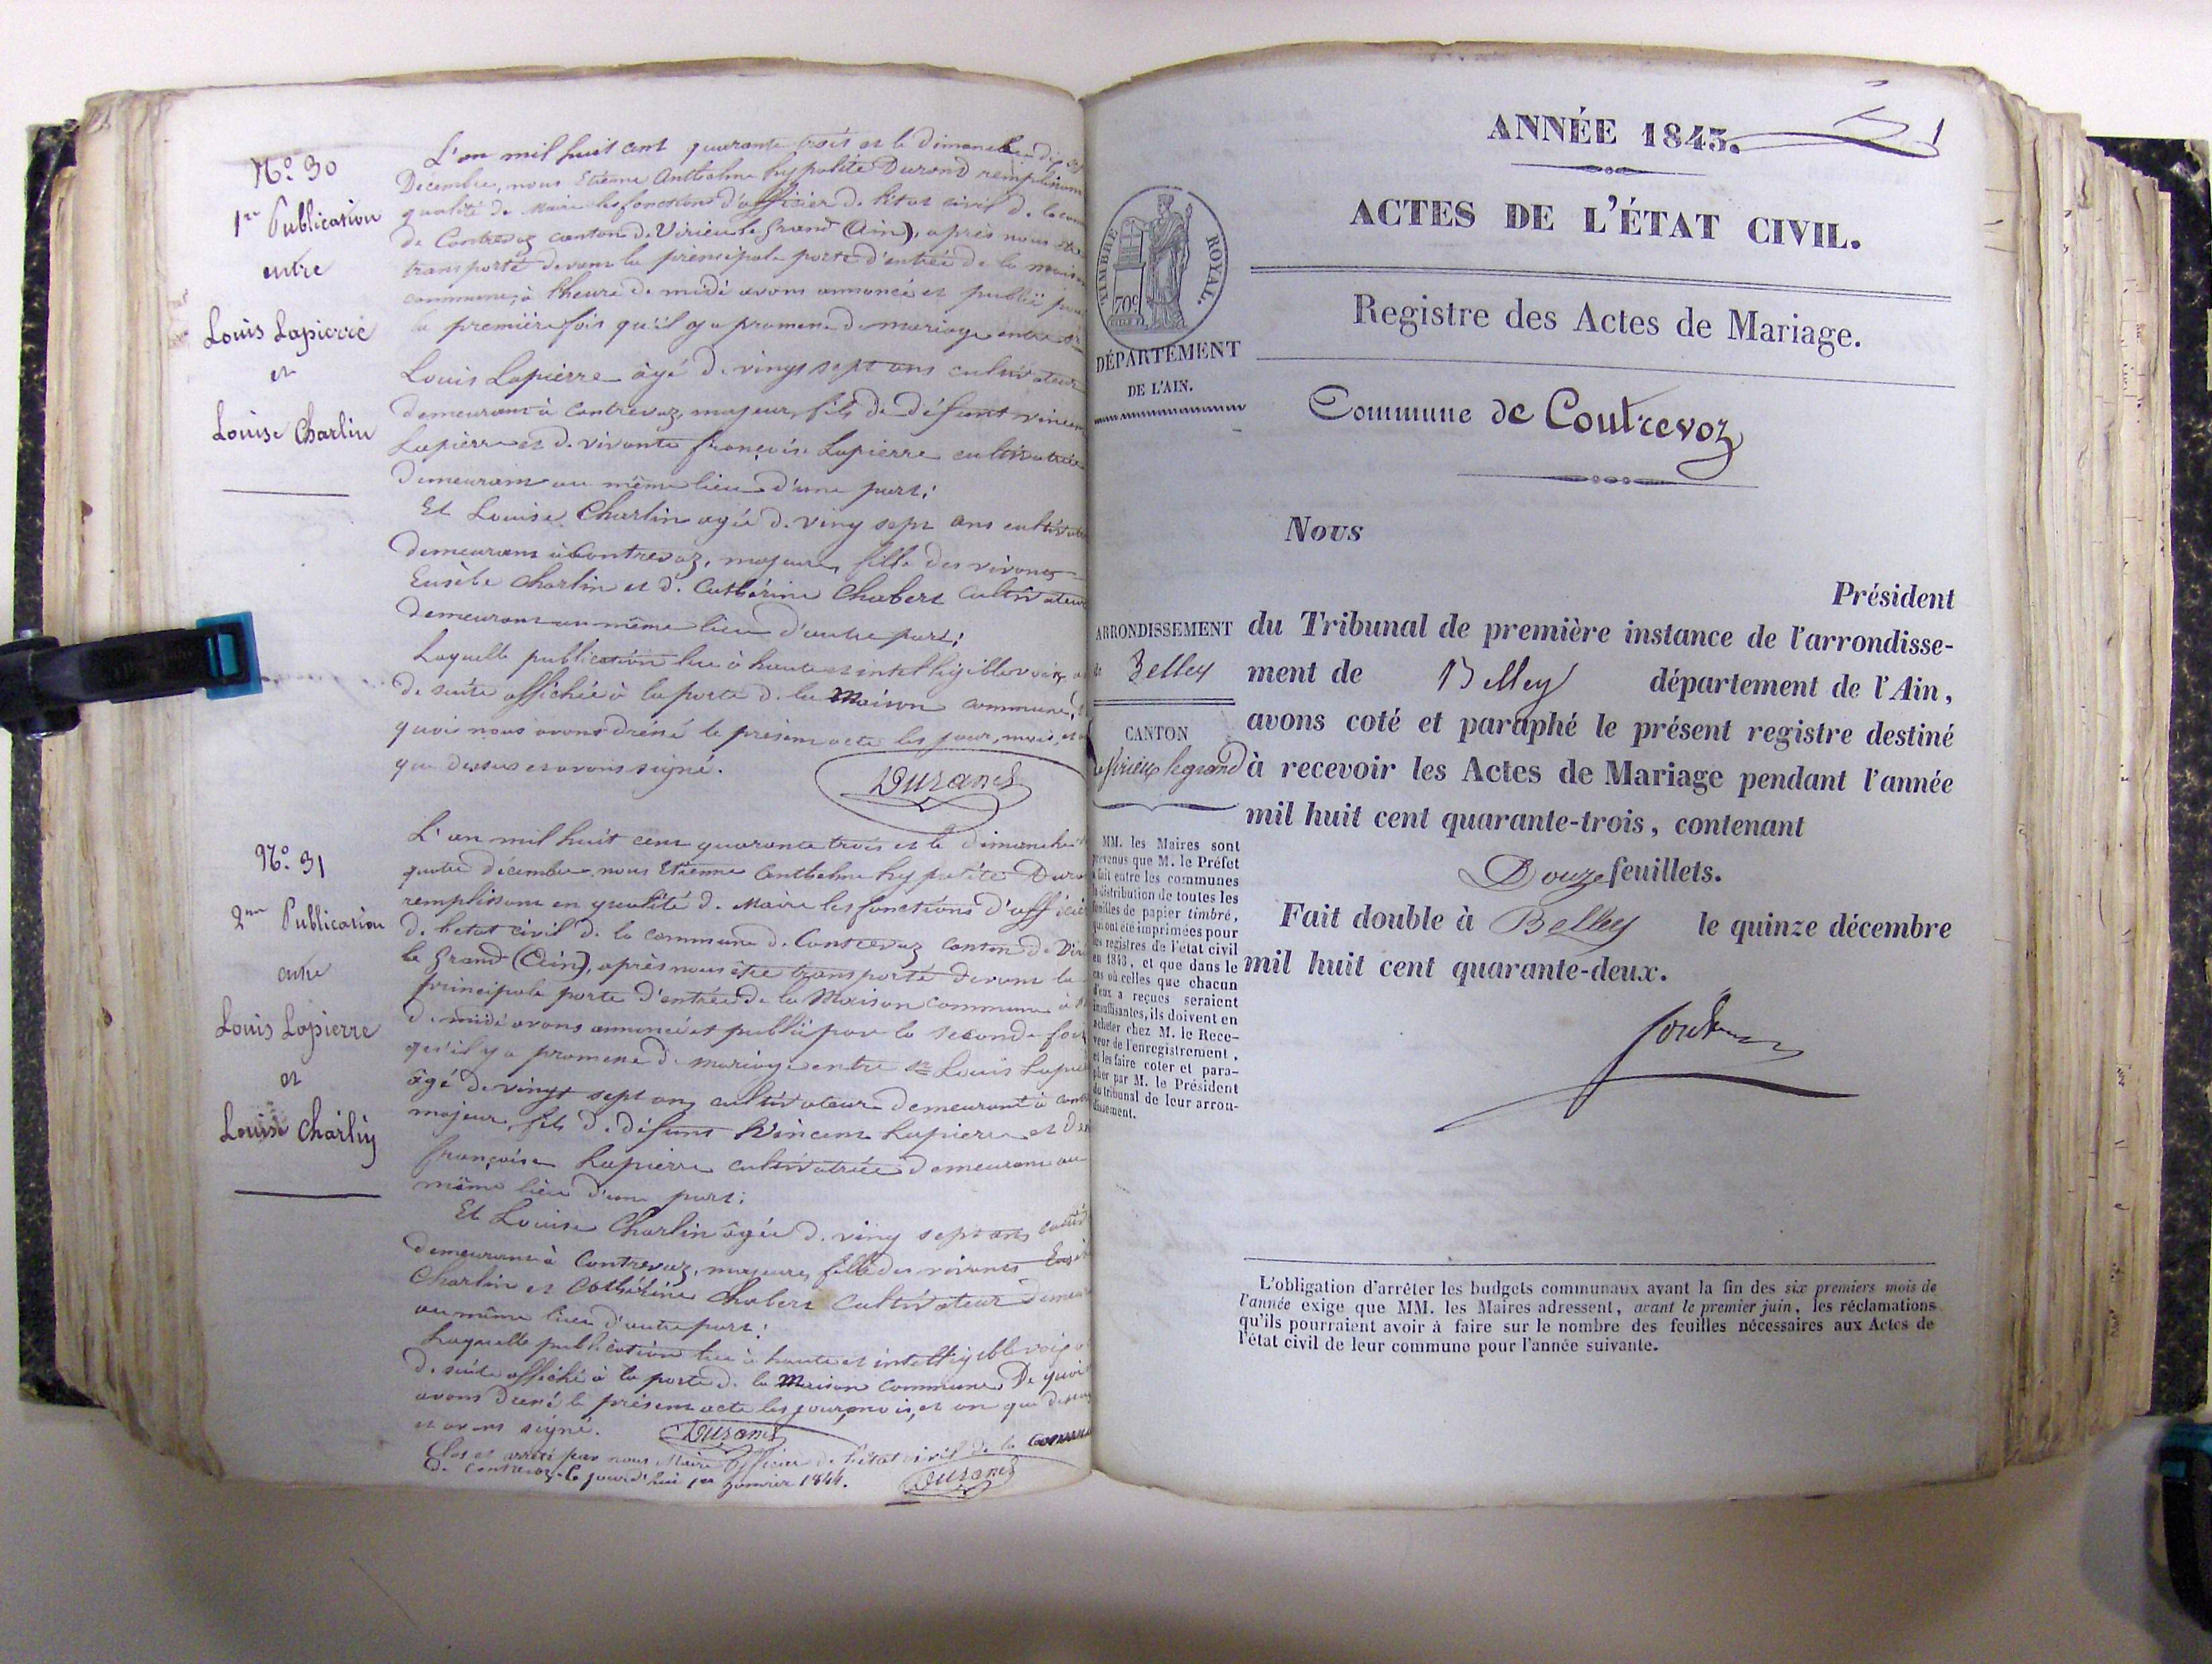 N.º 30
1re Publication
entre
Louis Lapierre
et
Louise Charlin
L'an mil huit cent quarante trois et le dimanche dix sept
Décembre, nous Etienne Anthelme hypolite Durand remplissant
qualité de Maire les fonctions d'officier de l'état civil de la com
de Contrevoz canton de Virieu le Grand (Ain), après nous être
transporté devant la principale porte d'entrée de la maison
commune, à l'heure de midi avons annoncé et publié pour
la première fois qu'il y a promesse de mariage entre sr
Louis Lapierre âgé de vingt sept ans cultivateur
demeurant à Contrevoz, majeur, fils de défunt vincent
Lapierre et de vivante françoise Lapierre cultivatrice
demeurant au même lieu d'une part;
Et Louise Charlin agée de vingt sept ans cultivat
demeurant à Contrevoz, majeure, fille des vivants
Eusèbe Charlin et de Cathérine Chabert cultivateur
demeurant au même lieu d'autre part;
Laquelle publication lue à haute et intelligible voix a
de suite affichée à la porte de la Maison commune,
quoi nous avons dréssé le présent acte les jour, mois, et
que dessus et avons signé.
Durand
N.º 31
2me Publication
entre
Louis Lapierre
et
Louise Charlin
L'an mil huit cent quarante trois et le dimanche
quatre décembre nous Etienne Anthelme hypolite Dura
remplissant en qualité de Maire les fonctions d'officier
de l'etat civil de la commune de Contrevoz canton de Viri
le Grand (Ain), après nous être transporté devant la
principale porte d'entrée de la Maison commune à l'
de midi avons annoncé et publié pour la seconde fois
qu'il y a promesse de mariage entre sr Louis Lapie
âgé de vingt sept ans cultivateur demeurant à Cont
majeur, fils de défunt Vincent Lapierre et de
françoise Lapierre cultivatrice demeurant au
même lieu d'une part;
Et Louise Charlin âgée de vingt sept ans cultiv
demeurant à Contrevoz, majeure, fille des vivants Eusèbe
Charlin et Cathérine Chabert cultivateur demeur
au même lieu d'autre part;
Laquelle publication lue à haute et intelligible voix a
de suite affiché à la porte de la Maison commune De quoi
avons dréssé le présent acte les jour, mois, et an que dessus
et avons signé.
Durand
Clos et arrêté par nous Maire officier de l'état civil de la commune
de Contrevoz le jourd'hui 1er Janvier 1844.
Durand
ANNÉE 1843.
1
ACTES DE L'ÉTAT CIVIL.
TIMBRE ROYAL.
70c
Registre des Actes de Mariage.
DÉPARTEMENT
DE L'AIN.
Commune de Contrevoz
Nous
Président
ARRONDISSEMENT
de Belley
du Tribunal de première instance de l'arrondisse-
ment de Belley département de l'Ain,
CANTON
de Virieu le grand
avons coté et paraphé le présent registre destiné
à recevoir les Actes de Mariage pendant l'année
mil huit cent quarante-trois, contenant
Douze feuillets.
Fait double à Belley le quinze décembre
mil huit cent quarante-deux.
MM. les Maires sont
prévenus que M. le Préfet
a fait entre les communes
la distribution de toutes les
feuilles de papier timbré,
qui ont été imprimées pour
les registres de l'état civil
en 1843, et que dans le
cas où celles que chacun
d'eux a reçues seraient
insuffisantes, ils doivent en
acheter chez M. le Rece-
veur de l'enregistrement,
et les faire coter et para-
pher par M. le Président
du tribunal de leur arron-
dissement.
L'obligation d'arrêter les budgets communaux avant la fin des six premiers mois de
l'année exige que MM. les Maires adressent, avant le premier juin, les réclamations
qu'ils pourraient avoir à faire sur le nombre des feuilles nécessaires aux Actes de
l'état civil de leur commune pour l'année suivante.